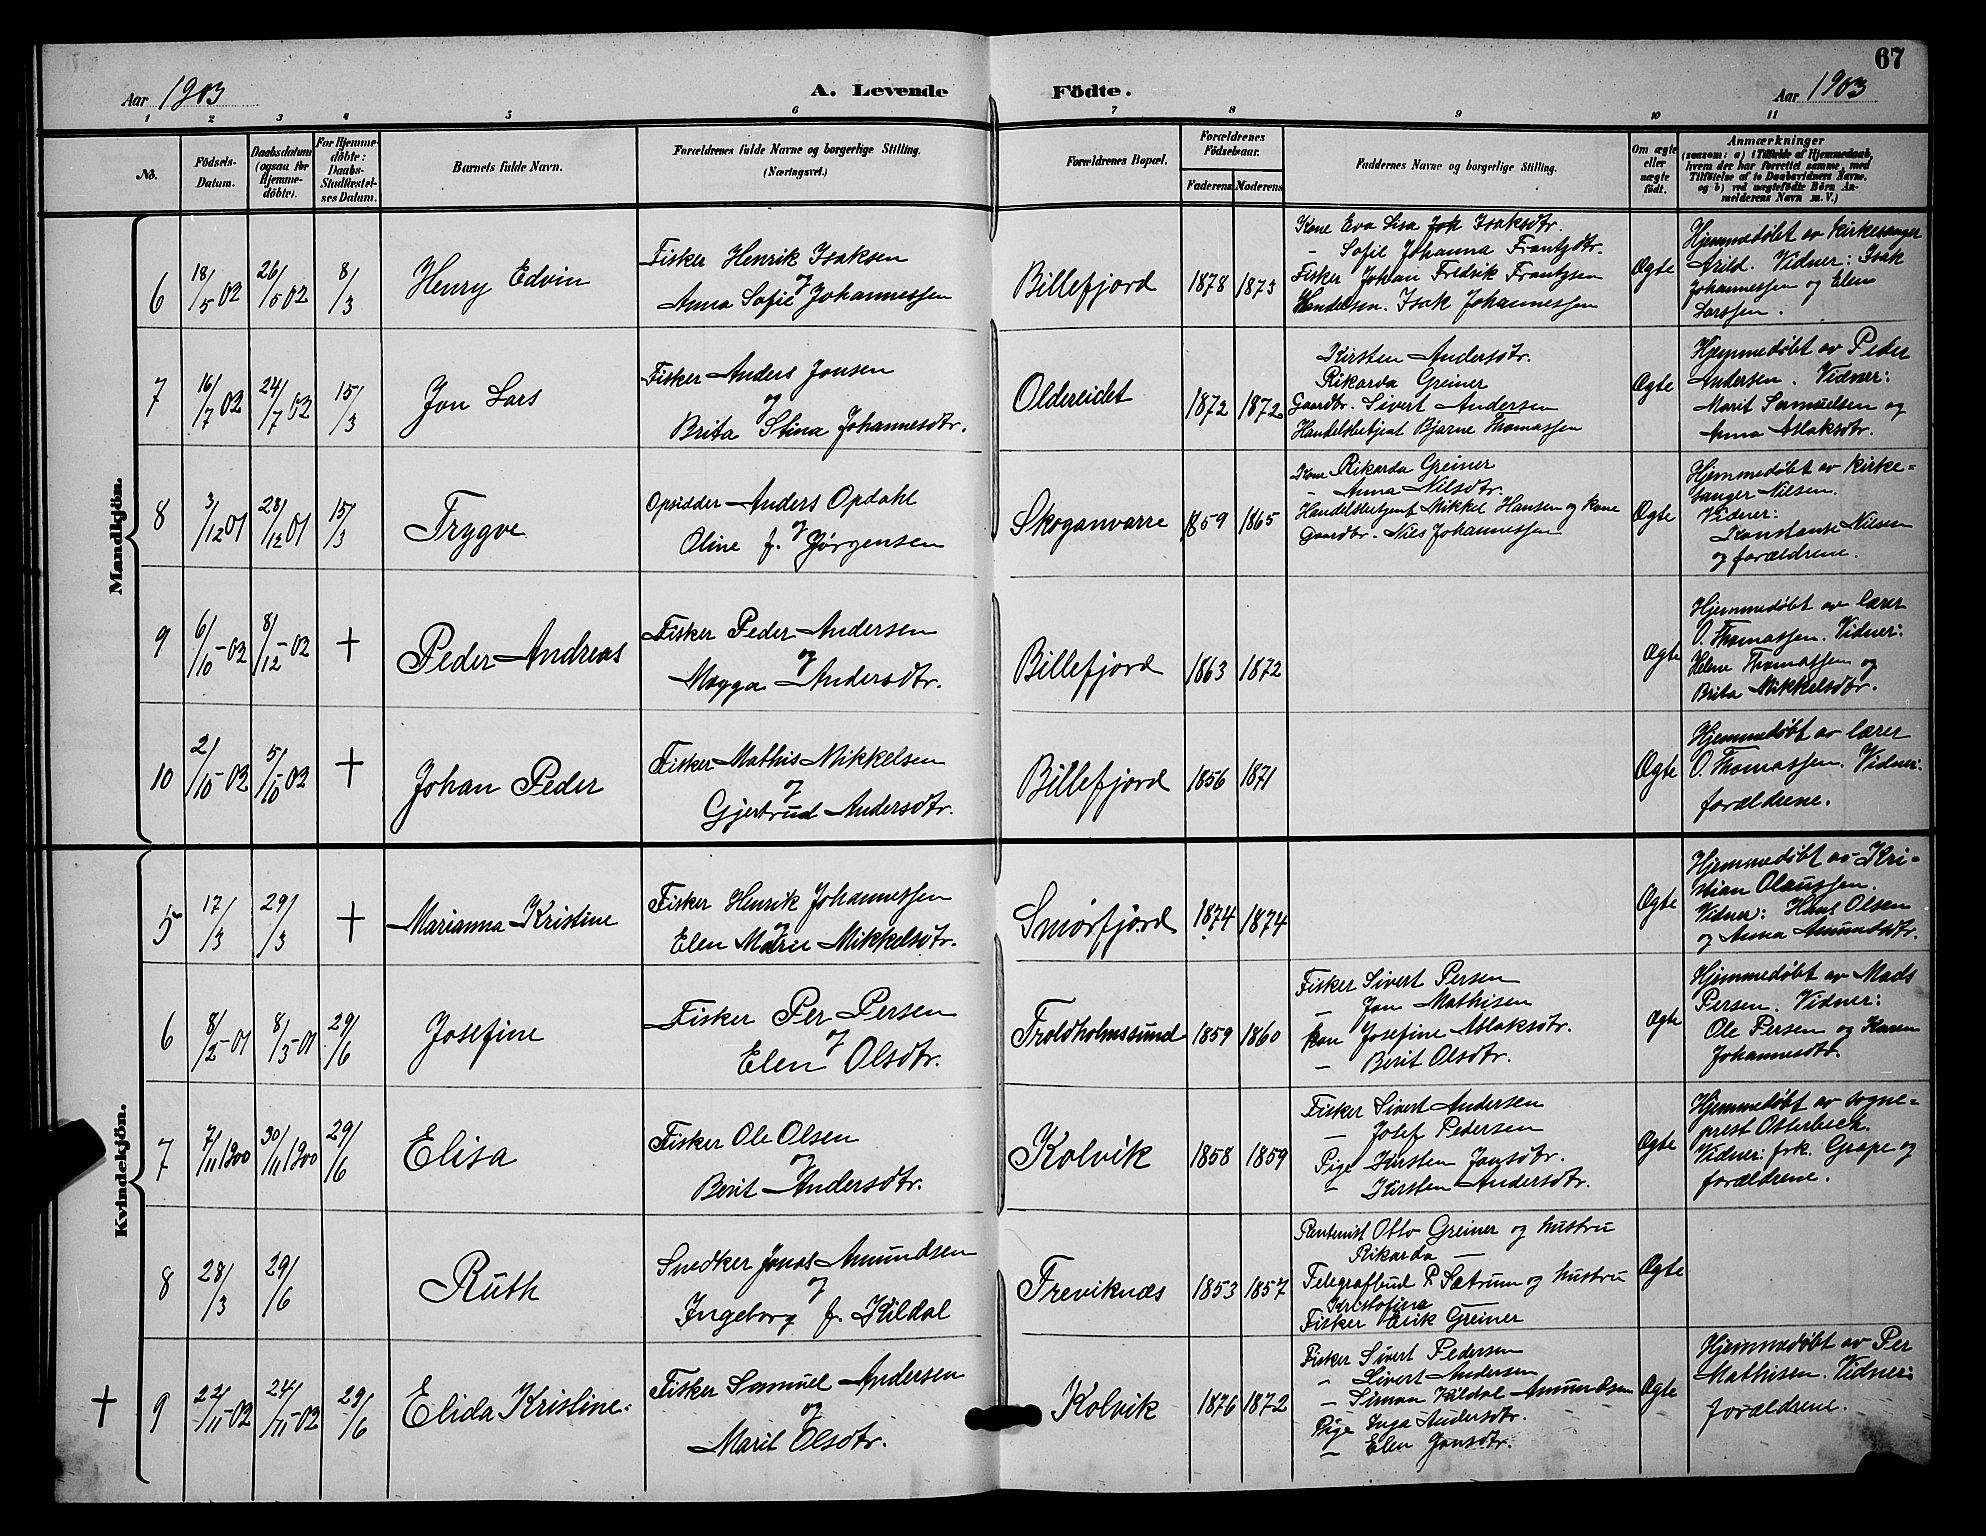 67
Aar 1903
A. Levende Födte.
Aar 1903
1 2 3 4 5 6 7 8 9 10 11
No.
Födsels-Datum.
Daabsdatum (ogsaa for Hjemme-döbte).
For Hjemme-döbte: Daabs-Stadfæstel-ses Datum.
Barnets fulde Navn.
Forældrenes fulde Navne og borgerlige Stilling. (Næringsvei.)
Forældrenes Bopæl.
Forældrenes Födselsaar.
Faderens Moderens
Faddernes Navne og borgerlige Stilling.
Om ægte eller uægte födt.
Anmærkninger
(saasom: a) i Tilfælde af Hjemmedaab, hvem der har forrettet samme, med Tilföielse af to Daabsvidners Navne, og b) ved uægtefödte Börn Anmelderens Navn m. V.)
Mandkjön.
6
18/5 02
26/5 02
8/3
Henry Edvin
Fisker Henrik Isaksen
og
Anna Sofie Johannessen
Billefjord
1878 1873
Kone Eva Lisa Joh Isaksdtr.
- Sofie Johanna Frantzdtr.
Fisker Johan Fredrik Frantzsen
Handelsm. Isak Johannessen
Ægte
Hjemmedøbt av kirkesanger
Arild. Vidner: Isak
Johannessen og Elen
Larssen.
7
16/7 02
24/7 02
15/3
Jon Lars
Fisker Anders Jonsen
og
Brita Stina Johannesdtr.
Oldereidet
1872 1872
Kirsten Andersdtr.
Rikarda Greiner
Gaardbr. Sivert Andersen
Handelsbetjent Bjarne Thomassen
Ægte
Hjemmedøbt av Peder
Andersen. Vidner:
Marit Samuelsen og
Anna Aslaksdtr.
8
3/12 01
28/12 01
15/3
Trygve
Opsidder Anders Opdahl
og
Oline f. Jørgensen
Skoganvarre
1859 1865
Kone Rikarda Greiner
- Anna Nilsdtr.
Handelsbetjent Mikkel Hansen og kone
Gaardbr. Nils Johannessen
Ægte
Hjemmedøbt av kirke-
sanger Nilsen.
Vidner:
Konstanse Nilsen
og forældrene.
9
6/10-02
8/12-02
+
Peder Andreas
Fisker Peder Andersen
og
Magga Andersdtr.
Billefjord
1863 1872
Ægte
Hjemmedøbt av lærer
O. Thomassen. Vidner:
Helene Thomassen og
Brita Mikkelsdtr.
10
2/10-02
5/10-02
+
Johan Peder
Fisker Mathis Mikkelsen
og
Gjertrud Andersdtr.
Billefjord
1856 1871
Ægte
Hjemmedøbt av lærer
O. Thomassen. Vidner:
forældrene.
Kvindekjön.
5
17/3
29/3
+
Marianna Kristine
Fisker Henrik Johannessen
og
Elen Marie Mikkelsdtr.
Smørfjord
1874 1874
Ægte
Hjemmedøbt av Kri-
stian Olaussen.
Vidner: Hans Olsen
og Anna Amundsdtr.
6
8/2-01
8/3-01
29/6
Josefine
Fisker Per Persen
og
Elen Olsdtr.
Troldholmssund
1859 1860
Fisker Sivert Persen
- Jon Mathisen
kone Josefine Aslaksdtr.
- Berit Olsdtr.
Ægte
Hjemmedøbt av Mads
Persen. Vidner:
Ole Persen og Karen
Johannesdtr.
7
7/11 1900
30/11 1900
29/6
Elisa
Fisker Ole Olsen
og
Berit Andersdtr.
Kolvik
1858 1859
Fisker Sivert Andersen
- Josef Pedersen
Pige Kirsten Jonsdtr.
- Kirsten Andersdtr.
Ægte
Hjemmedøbt av sogne-
prest Otterbech.
Vidner: frk. Grape og
forældrene.
8
28/3
29/6
Ruth
Snedker Jonas Amundsen
og
Ingeborg f. Kildal
Treviknæs
1853 1857
Otto Greiner og hustru
Rikarda -
Telegrafbud P. Sætrum og hustru
Kristofine
Fisker Erik Greiner
Ægte
+
9
22/11-02
24/11-02
29/6
Elida Kristine
Fisker Samuel Andersen
og
Marit Olsdtr.
Kolvik
1876 1872
Fisker Sivert Pedersen
- Sivert Andersen
- Simon Kildal Amundsen
Pige Inga Andersdtr.
- Elen Jonsdtr.
Ægte
Hjemmedøbt av Per
Mathisen. Vidner:
forældrene.